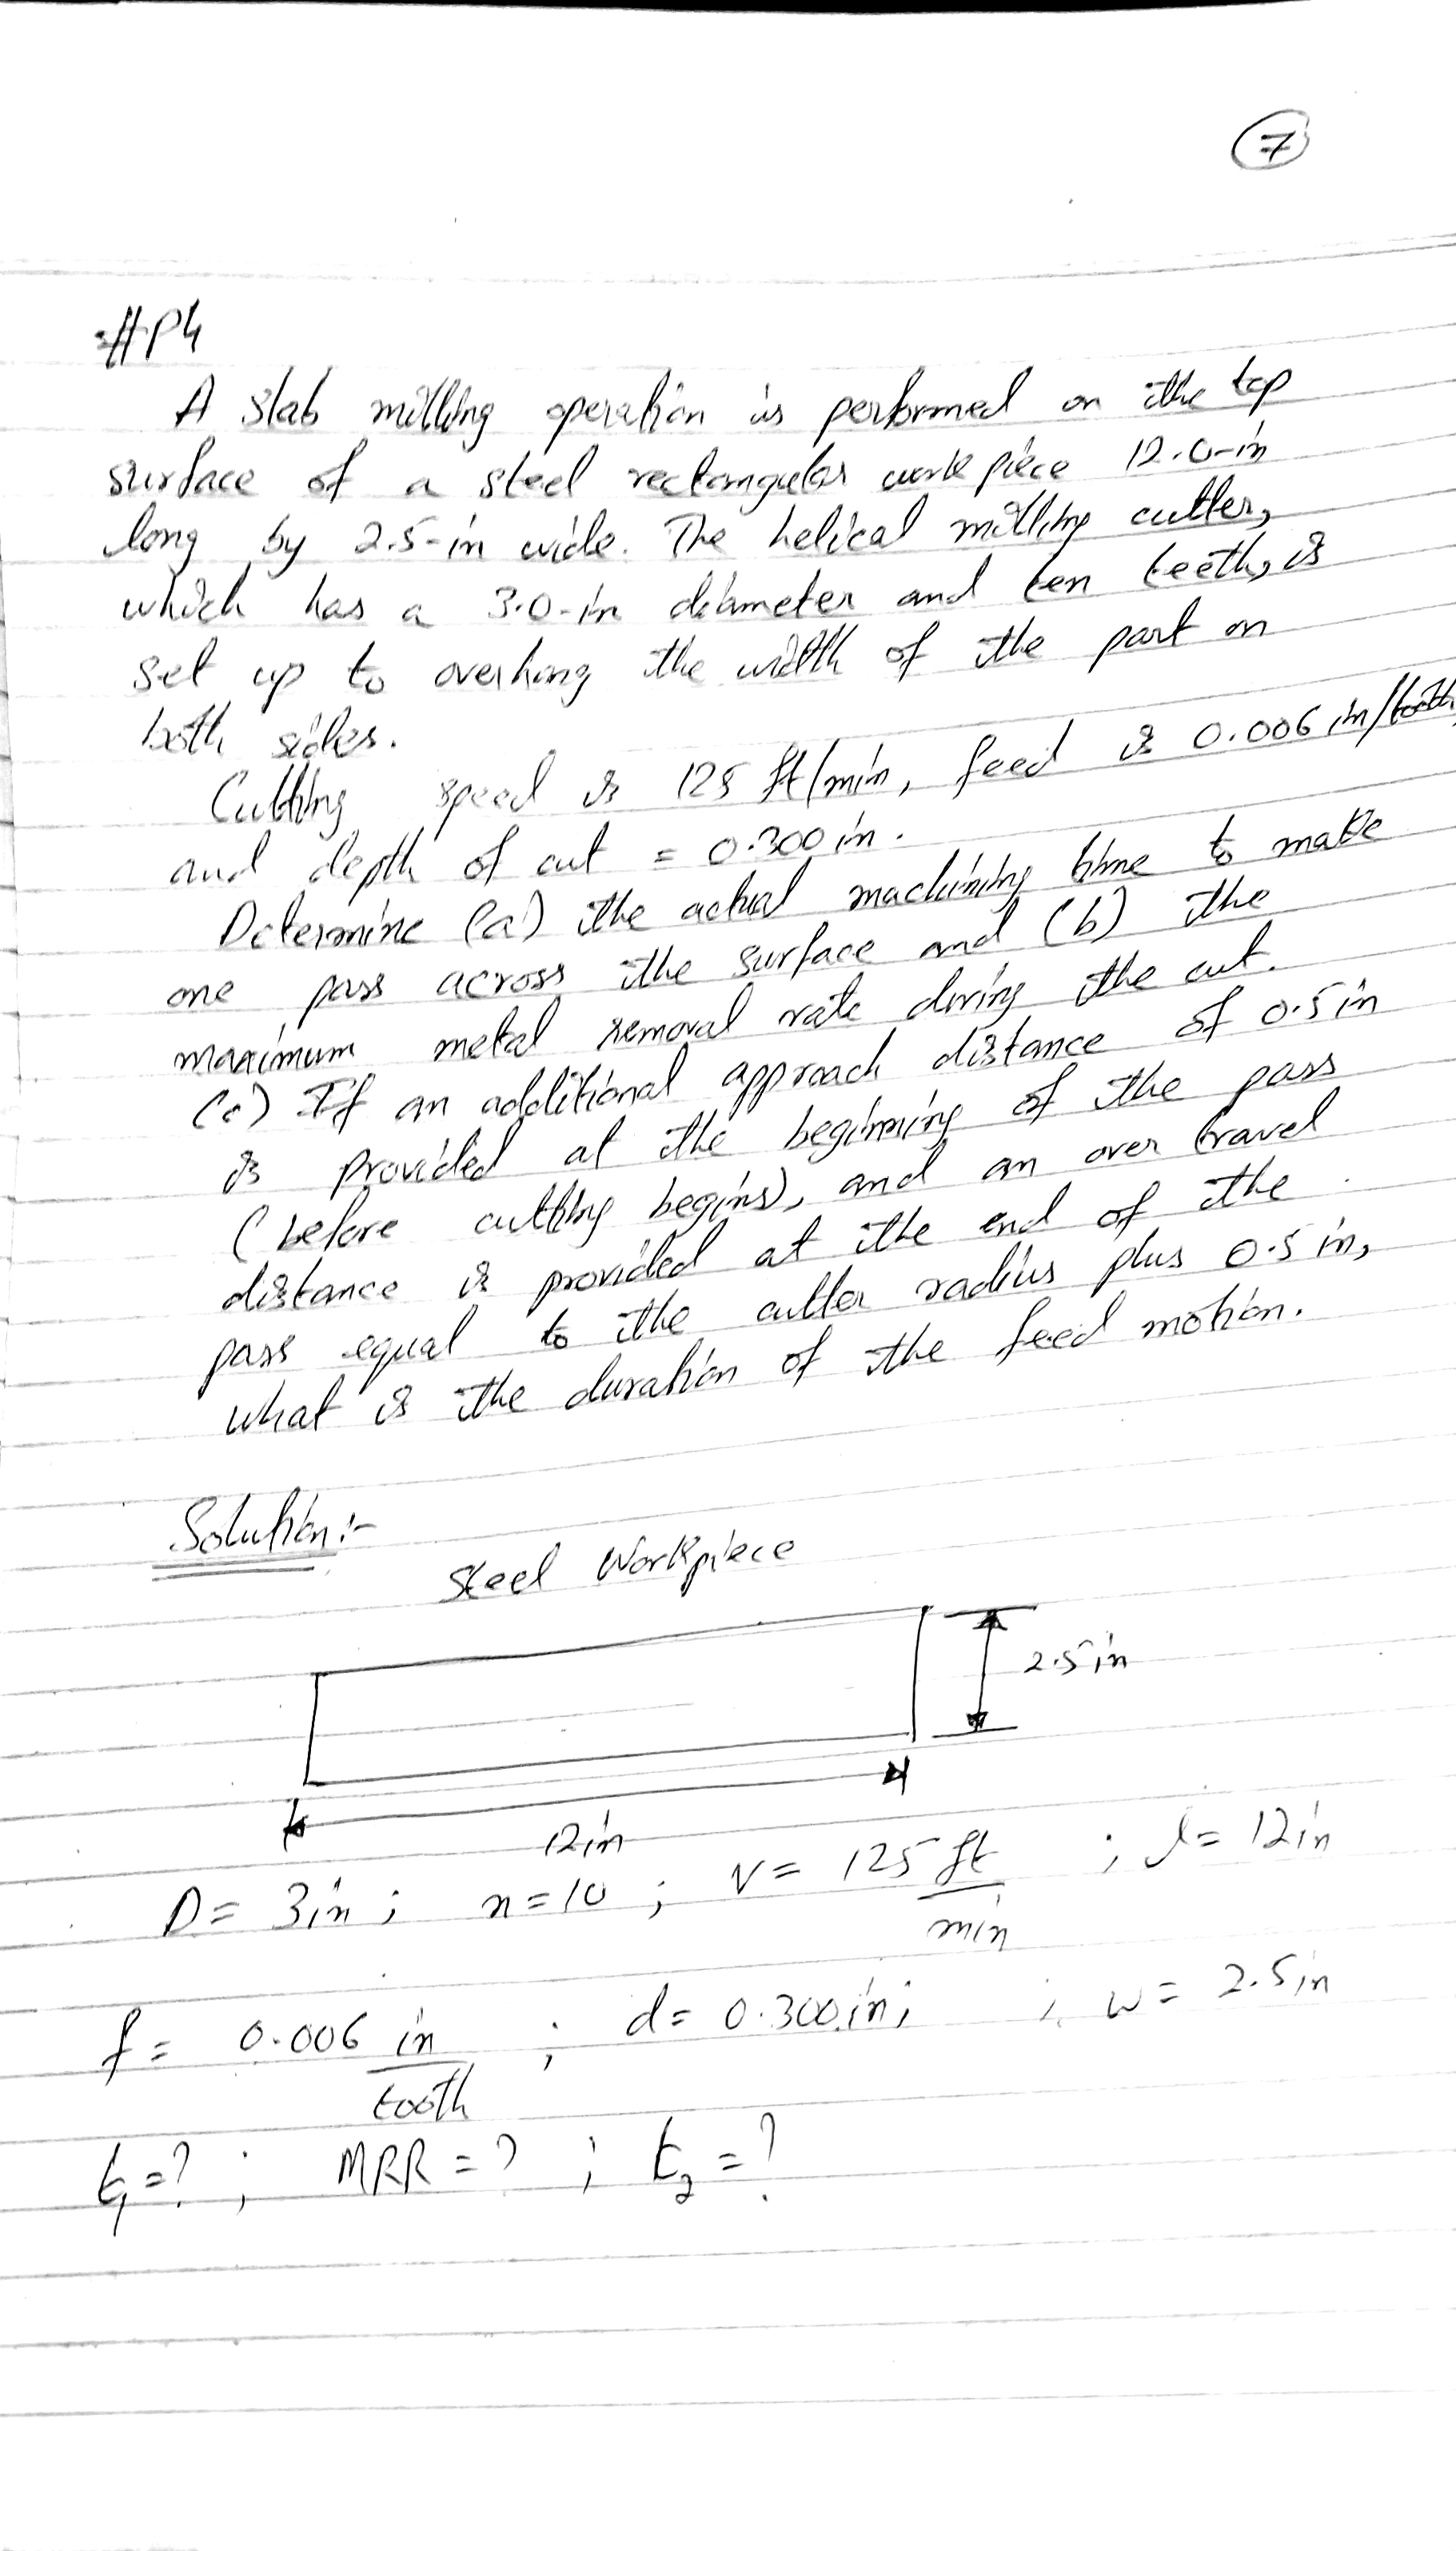 7
#P4
A slab milling operation is performed on the top
surface of a steel rectangular work piece 12.0-in
long by 2.5-in wide. The helical milling cutter,
which has a 3.0-in diameter and ten teeth, is
set up to overhang the width of the part on
both sides.
Cutting speed is 125 ft/min, feed is 0.006 in/tooth,
and depth of cut = 0.300 in.
Determine (a) the actual machining time to make
one pass across the surface and (b) the
maximum metal removal rate during the cut.
(c) If an additional approach distance of 0.5 in
is provided at the beginning of the pass
(before cutting begins), and an over travel
distance is provided at the end of the
pass equal to the cutter radius plus 0.5 in,
what is the duration of the feed motion.
Solution:-
Steel Workpiece
2.5 in
12 in
D = 3 in ; n = 10 ; V = 125 ft/min ; l = 12 in
f = 0.006 in/tooth ; d = 0.300 in ; ; w = 2.5 in
t1 = ? ; MRR = ? ; t2 = ?